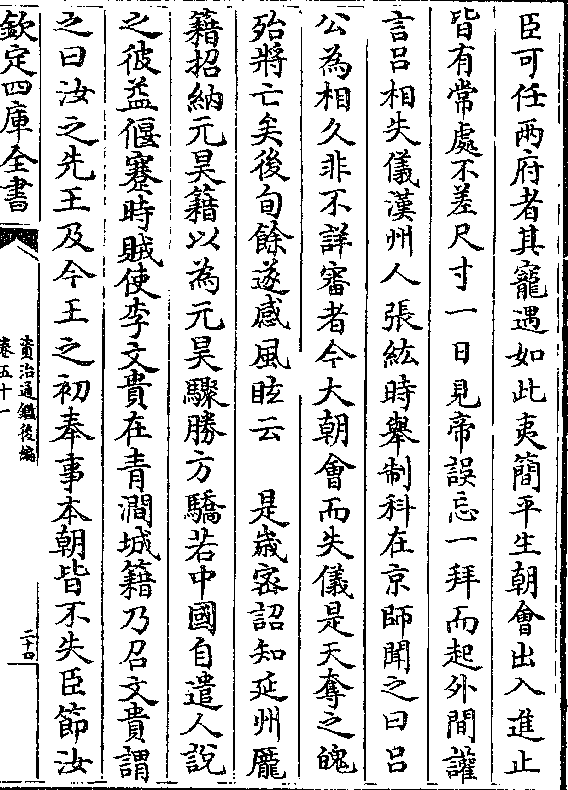 臣可任兩府者其寵遇如此夷簡平生朝會出入進止
皆有常處不差尺寸一日見帝誤忘一拜而起外間讙
言吕相失儀漢州人張紘時舉制科在京師聞之曰吕
公為相久非不詳審者今大朝會而失儀是天奪之魄
殆將亡矣後旬餘遂感風眩云　是歲密詔知延州龐
籍招納元昊籍以為元昊驟勝方驕若中國自遣人說
之彼益偃蹇時賊使李文貴在青澗城籍乃召文貴謂
之曰汝之先王及今王之初奉事本朝皆不失臣節汝
欽定四庫全書
資治通鑑後編
卷五十一
二十四